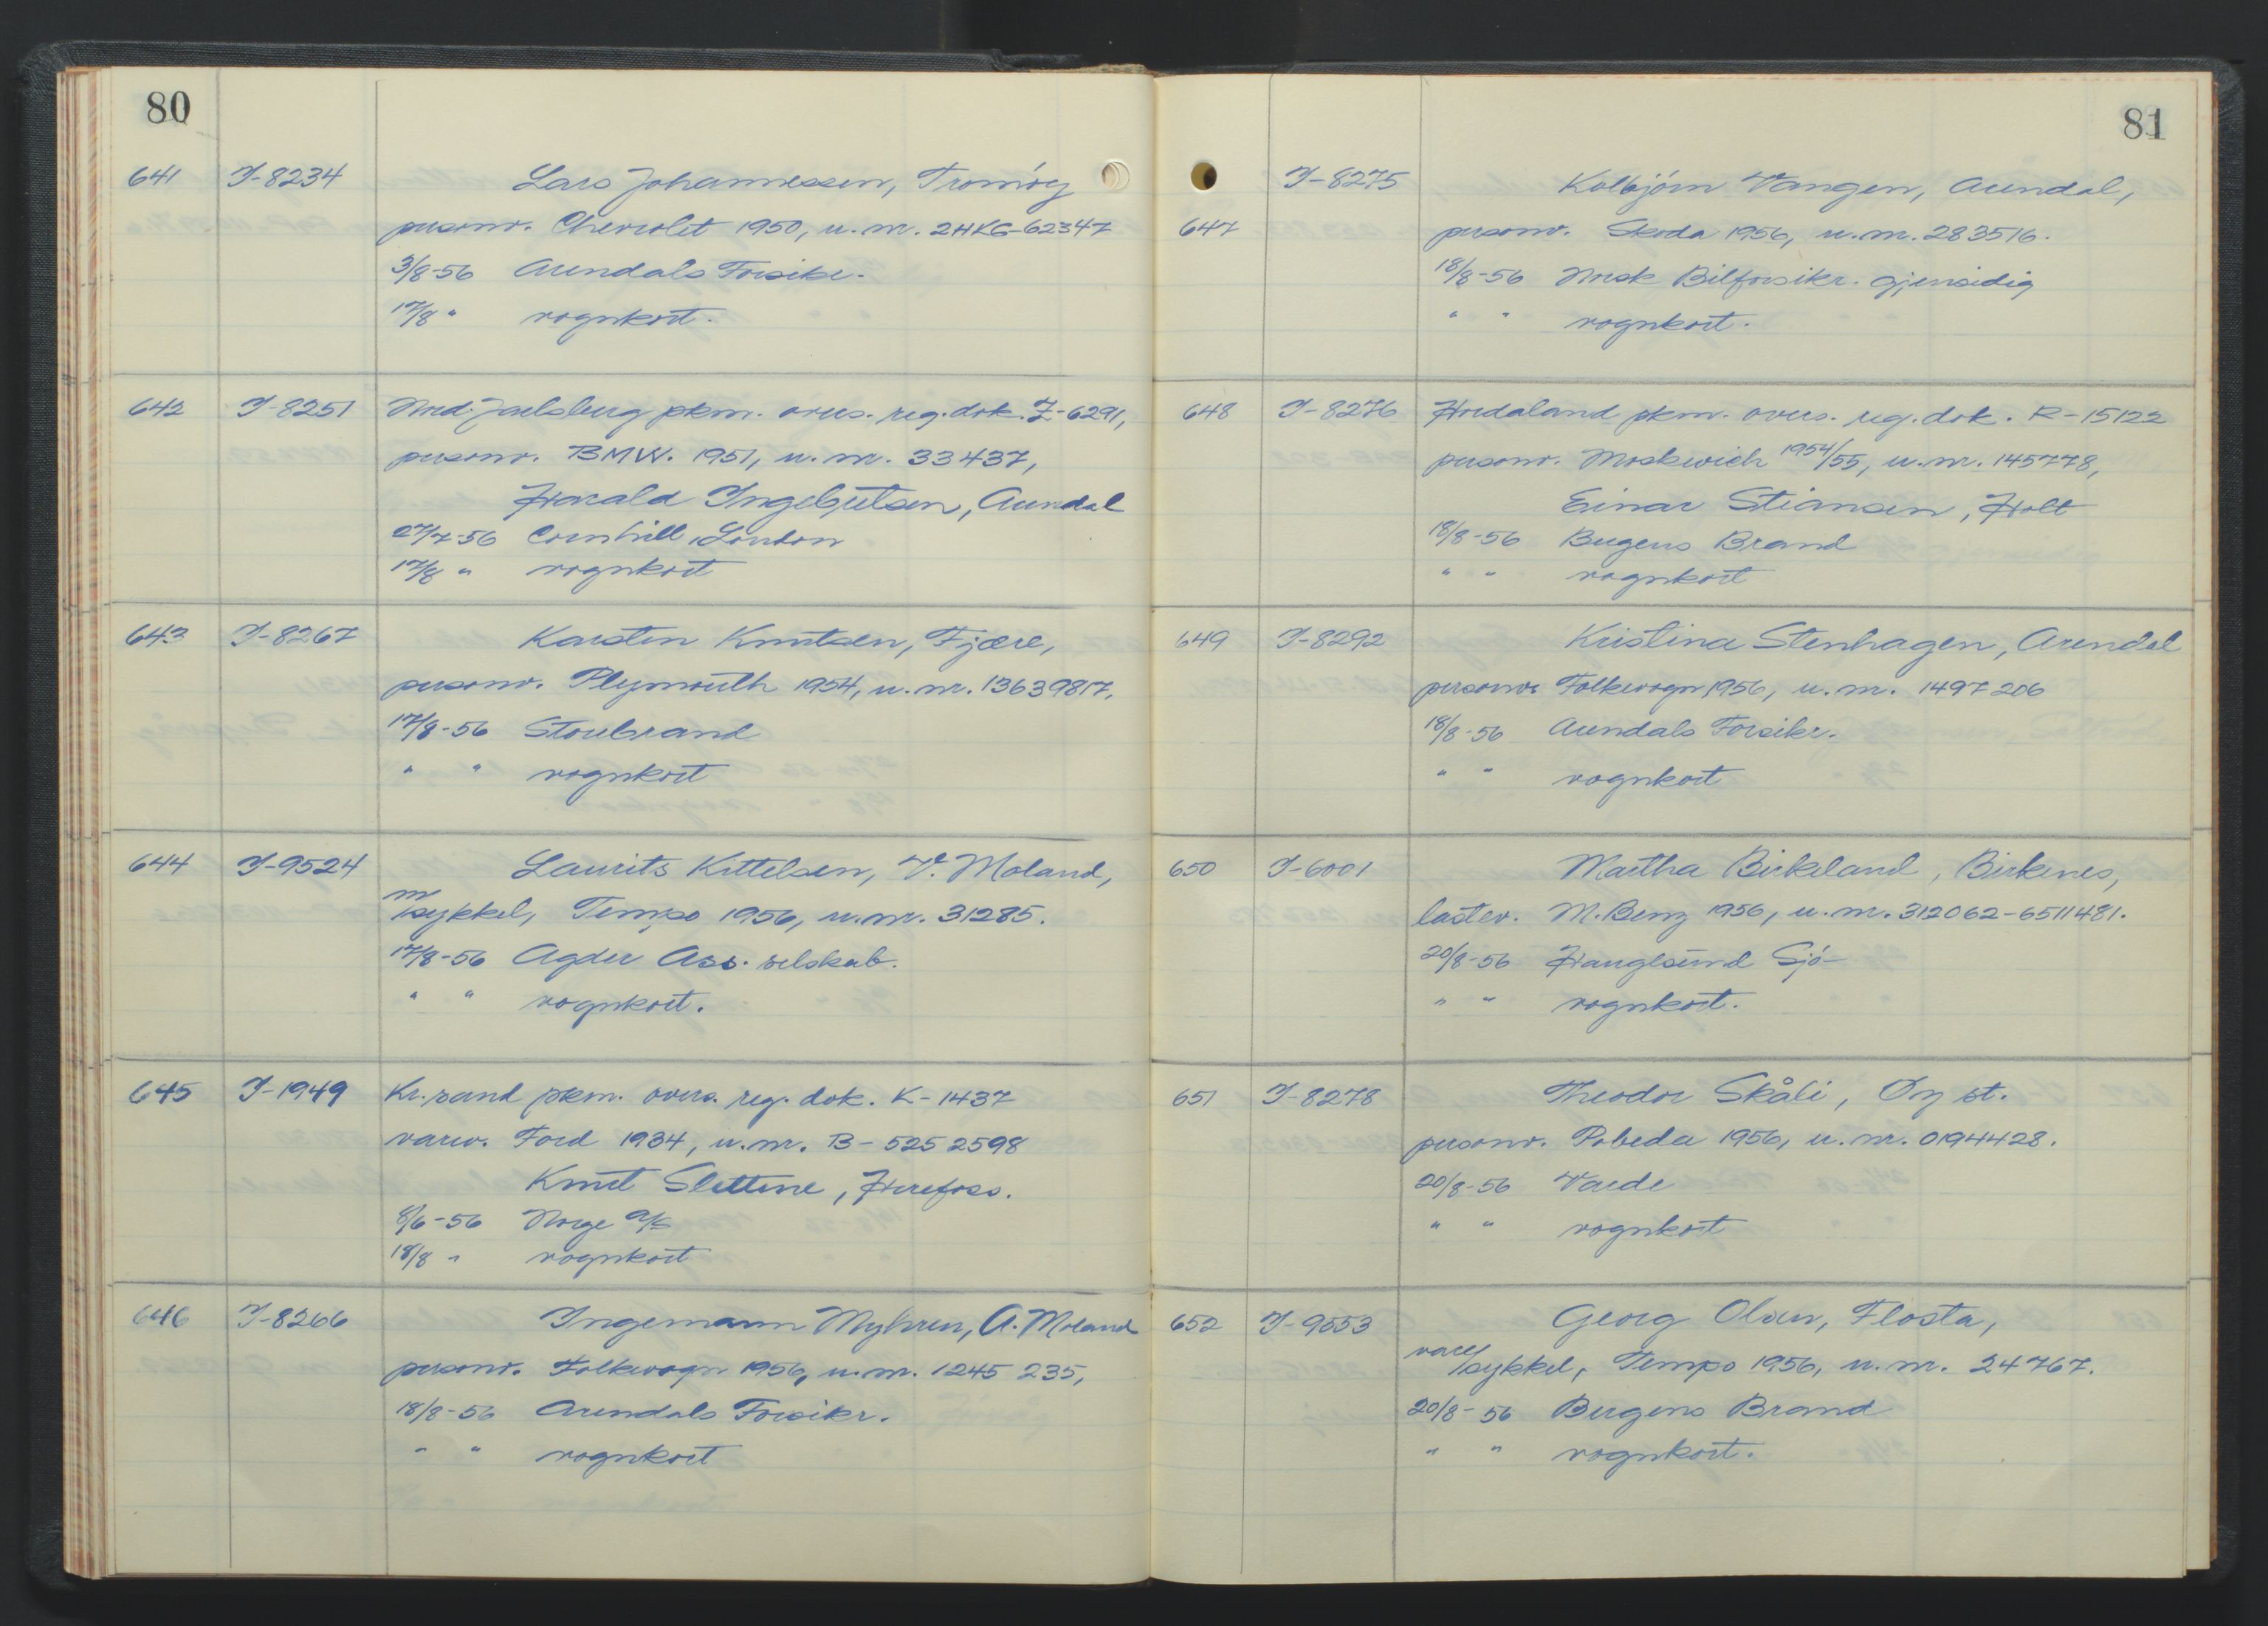 80
641 I-8234 Lars Johannessen, Tromøy
personv. Chevrolet 1950, u.nr. 2HKG-62347
3/8-56 Arendals Forsikr.
17/8 " vognkort.
642 I-8251 Nord-Jarlsberg pkm. overs. reg.dok. Z-6291,
personv. BMW. 1951, u.nr. 33437,
Harald Ingebretsen, Arendal
27/7-56 Cornhill, London
17/8 " vognkort
643 I-8267 Karsten Knutsen, Fjære,
personv. Plymouth 1954, u.nr. 13639817,
17/8-56 Storebrand
" " vognkort
644 I-9524 Laurits Kittelsen, V. Moland,
m/sykkel, Tempo 1956, u.nr. 31285.
17/8-56 Agder Ass. selskab.
" " vognkort.
645 I-1949 Kr.sand pkm. overs. reg. dok. K-1437
varev. Ford 1934, u.nr. B-5252598
Knut Slettene, Herefoss.
8/6-56 Norge a/s
18/8 " vognkort
646 I-8266 Ingemann Myhren, A. Moland
personv. Folkevogn 1956, u.nr. 1245 235,
18/8-56 Arendals Forsikr.
" " vognkort
81
647 I-8275 Kolbjørn Vangen, Arendal,
personv. Skoda 1956, u.nr. 283516.
18/8-56 Norsk Bilforsikr. Gjensidig
" " vognkort.
648 I-8276 Hordaland pkm. overs. reg.dok. R-15122
personv. Moskwich 1954/55, u.nr. 145778,
Einar Stiansen, Holt
18/8-56 Bergens Brand
" " vognkort
649 I-8292 Kristina Stenhagen, Arendal
personv. Folkevogn 1956, u.nr. 1497 206
18/8-56 Arendals Forsikr.
" " vognkort
650 I-6001 Martha Birkeland, Birkenes,
lastev. M.Benz 1956, u.nr. 312062-6511481.
20/8-56 Haugesund Sjø-
" " vognkort.
651 I-8278 Theodor Skåli, Øy st.
personv. Pobeda 1956, u.nr. 0194428.
20/8-56 Varde
" " vognkort
652 I-9553 Georg Olsen, Flosta,
vare/sykkel, Tempo 1956, u.nr. 24767.
20/8-56 Bergens Brand
" " vognkort.